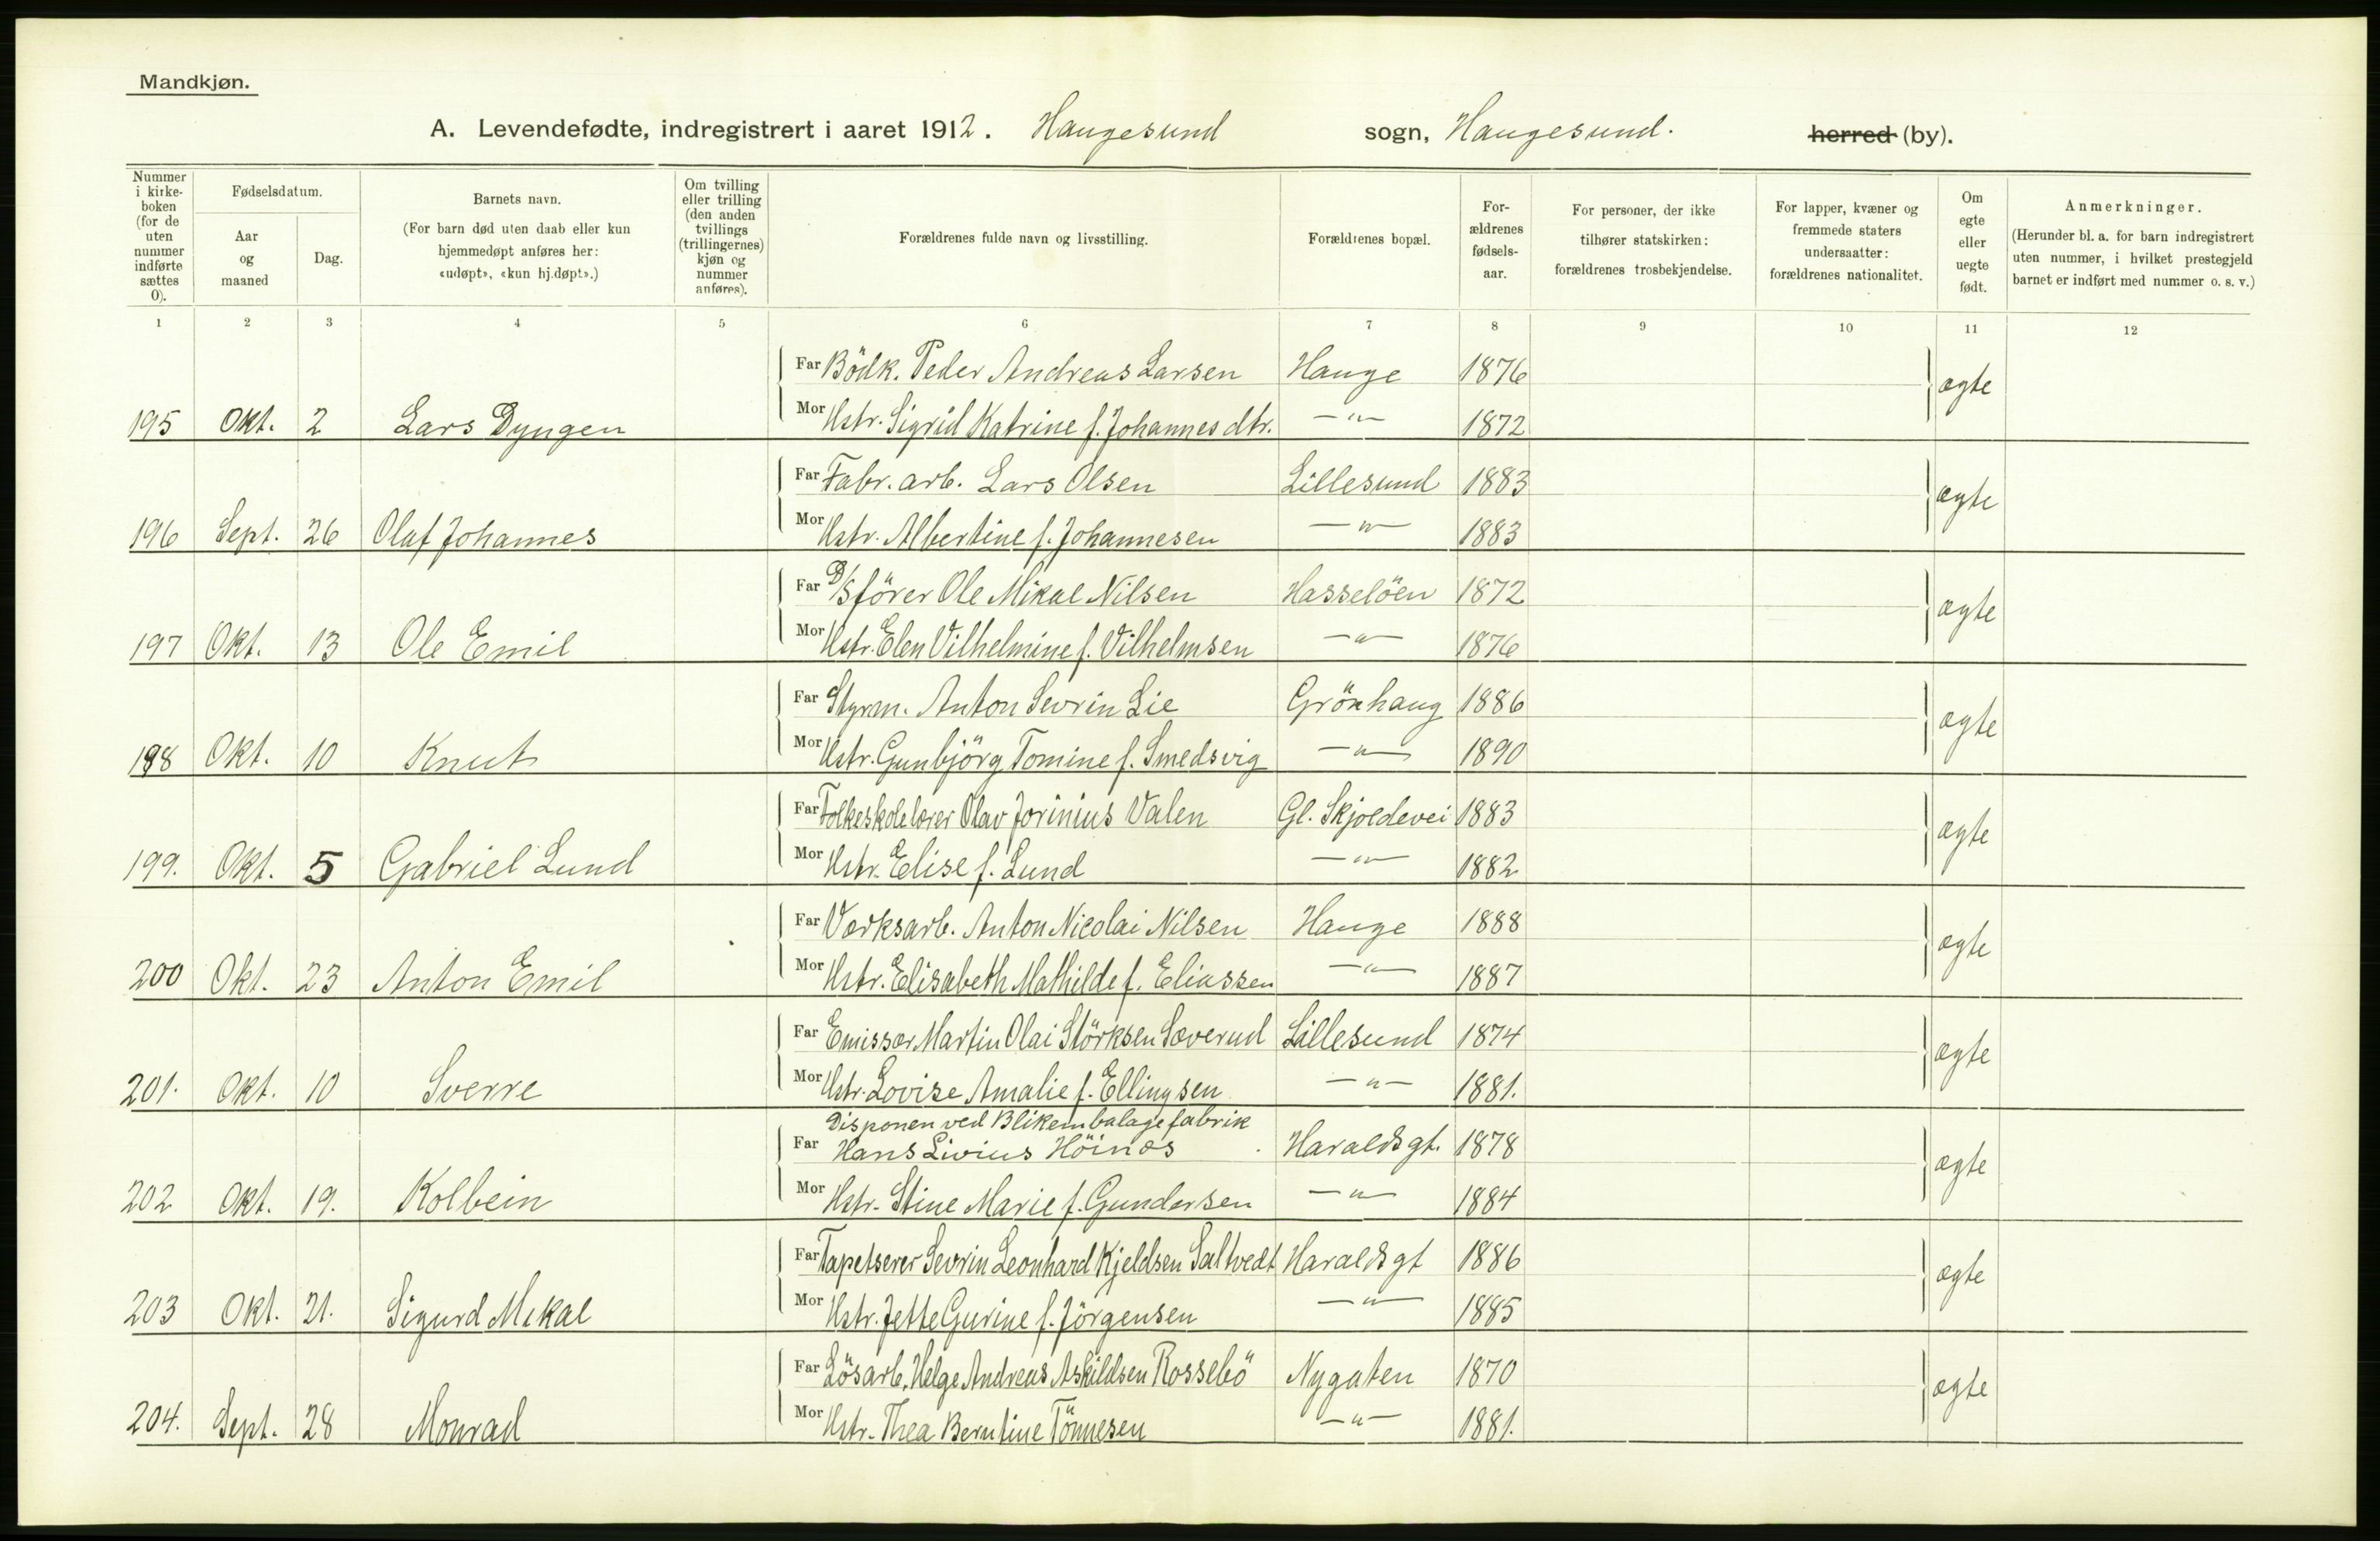 Mandkjøn.
A. Levendefødte, indregistrert i aaret 1912. Haugesund sogn, Haugesund. herred (by).
Nummer i kirkeboken (for de uten nummer indførte sættes 0).
Fødselsdatum.
Aar og maaned
Dag.
Barnets navn.
(For barn død uten daab eller kun hjemmedøpt anføres her: «udøpt», «kun hj.døpt».)
Om tvilling eller trilling (den anden tvillings (trillingernes) kjøn og nummer anføres).
Forældrenes fulde navn og livsstilling.
Forældrenes bopæl.
Forældrenes fødselsaar.
For personer, der ikke tilhører statskirken: forældrenes trosbekjendelse.
For lapper, kvæner og fremmede staters undersaatter: forældrenes nationalitet.
Om egte eller uegte født.
Anmerkninger.
(Herunder bl. a. for barn indregistrert uten nummer, i hvilket prestegjeld barnet er indført med nummer o. s. v.)
1 2 3 4 5 6 7 8 9 10 11 12
Far Bödk. Peder Andreas Larsen Hauge 1876 ægte
195 Okt. 2 Lars Dyngen Mor Hstr. Sigrid Katrine f. Johannesdtr. —"— 1872
Far Fabr. arb. Lars Olsen Lillesund 1883 ægte
196 Sept. 26 Olaf Johannes Mor Hstr. Albertine f. Johannesen —"— 1883
Far D/S förer Ole Mikal Nilsen Hasselöen 1872 ægte
197 Okt. 13 Ole Emil Mor Hstr. Elen Vilhelmine f. Vilhelmsen —"— 1876
Far Styrm. Anton Sevrin Lie Grönhaug 1886 ægte
198 Okt. 10 Knut Mor Hstr. Gunbjörg Tomine f. Smedsvig —"— 1890
Far Folkeskolelærer Olav Jorinius Valen Gl. Skjoldevei 1883 ægte
199. Okt. 5 Gabriel Lund Mor Hstr. Elise f. Lund —"— 1882
Far Værksarb. Anton Nicolai Nilsen Hauge 1888 ægte
200 Okt. 23 Anton Emil Mor Hstr. Elisabeth Mathilde f. Eliassen —"— 1887
Far Emissær Martin Olai Störksen Sæverud Lillesund 1874 ægte
201. Okt. 10 Sverre Mor Hstr. Lovise Amalie f. Ellingsen —"— 1881.
Disponen ved Blikembalagefabrik
Far Hans Livius Höinæs Haraldsgt. 1878 ægte
202 Okt. 19. Kolbein Mor Hstr. Stine Marie f. Gundersen —"— 1884
Far Tapetserer Sevrin Leonhard Kjeldsen Saltvedt Haraldsgt 1886 ægte
203 Okt. 21. Sigurd Mikal Mor Hstr. Jette Gurine f. Jörgensen —"— 1885
Far Lösarb. Helge Andreas Askildsen Rossebö Nygaten 1870 ægte
204. Sept. 28 Monrad Mor Hstr. Thea Berntine Tönnesen —"— 1881.